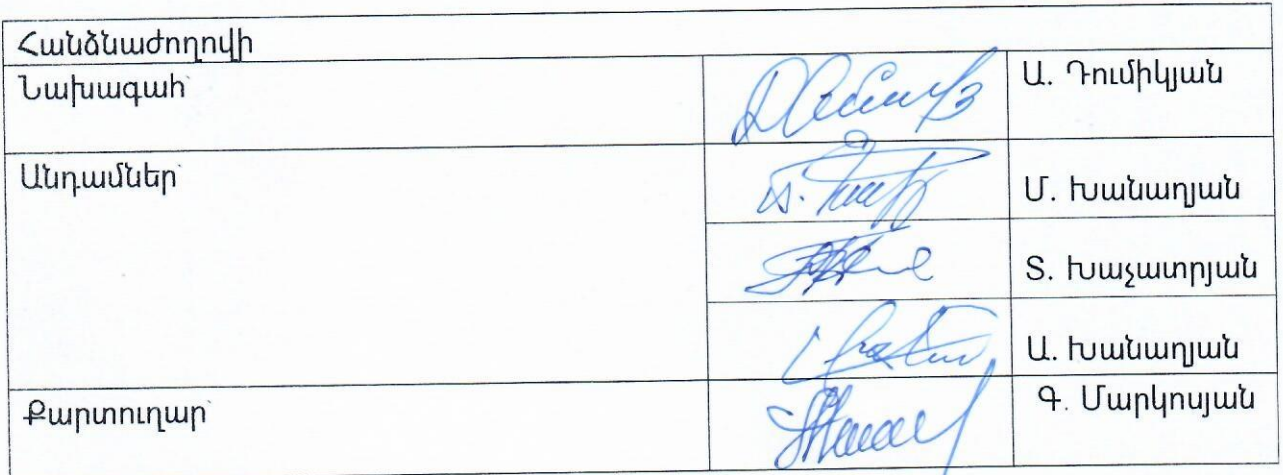 Հանձնաժողովի
Նախագահ՝
Ա. Դումիկյան
Անդամներ՝
Մ. Խանաղյան
Տ. Խաչատրյան
Ա. Խանաղյան
Քարտուղար՝
Գ. Մարկոսյան